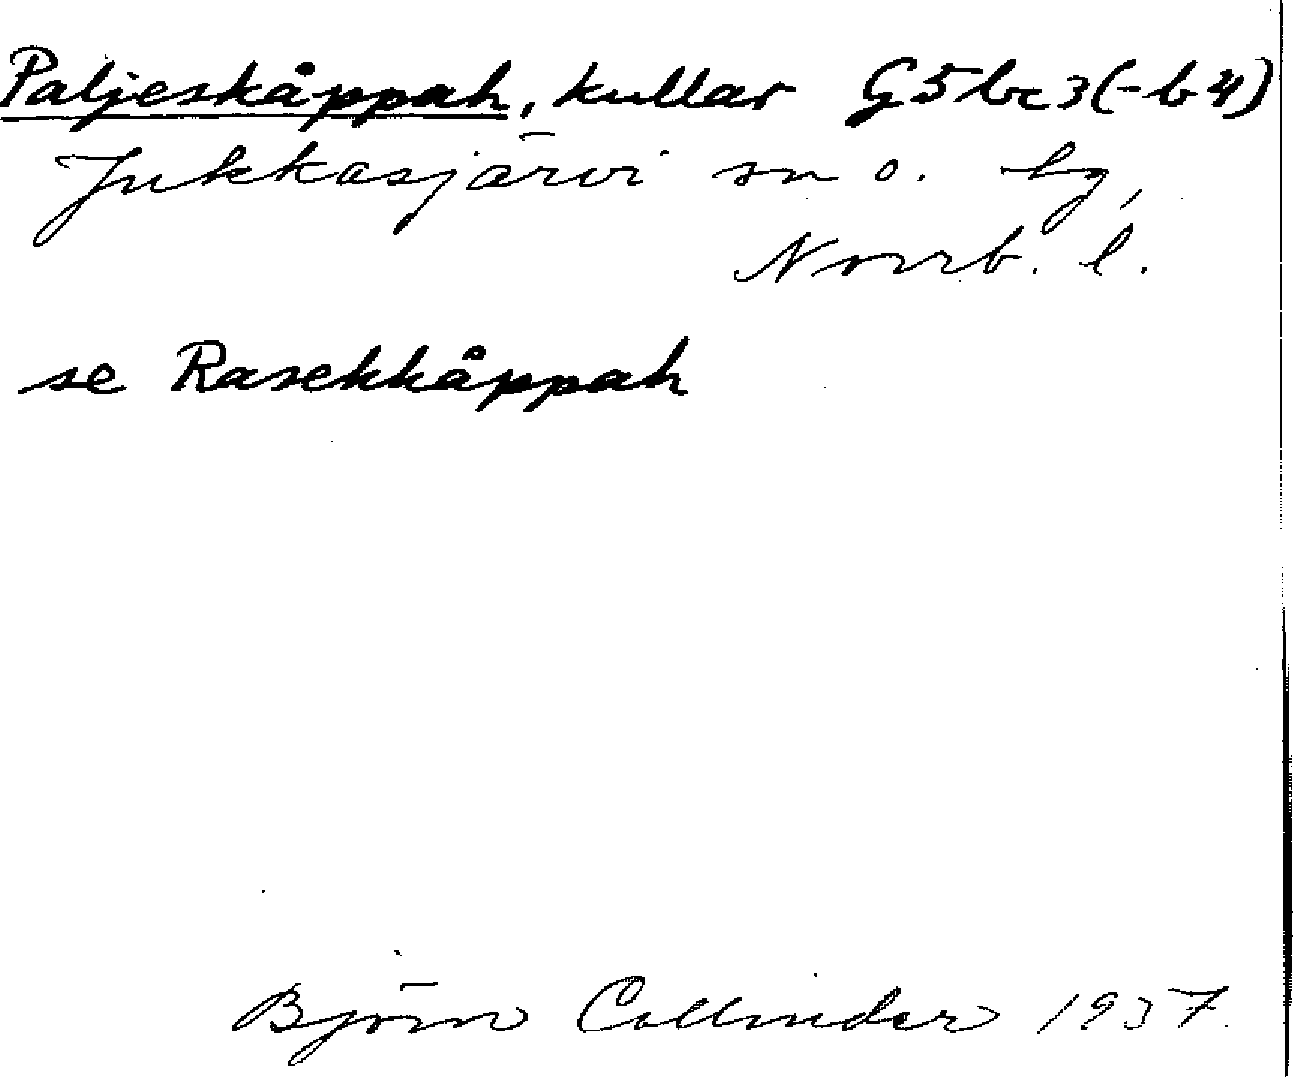 Paljeskåppah, kullar G5bc3(-b4)
Jukkasjärvi sn o. lg,
Norrb. l.
se Rasekkåppah
Björn Collinder 1937